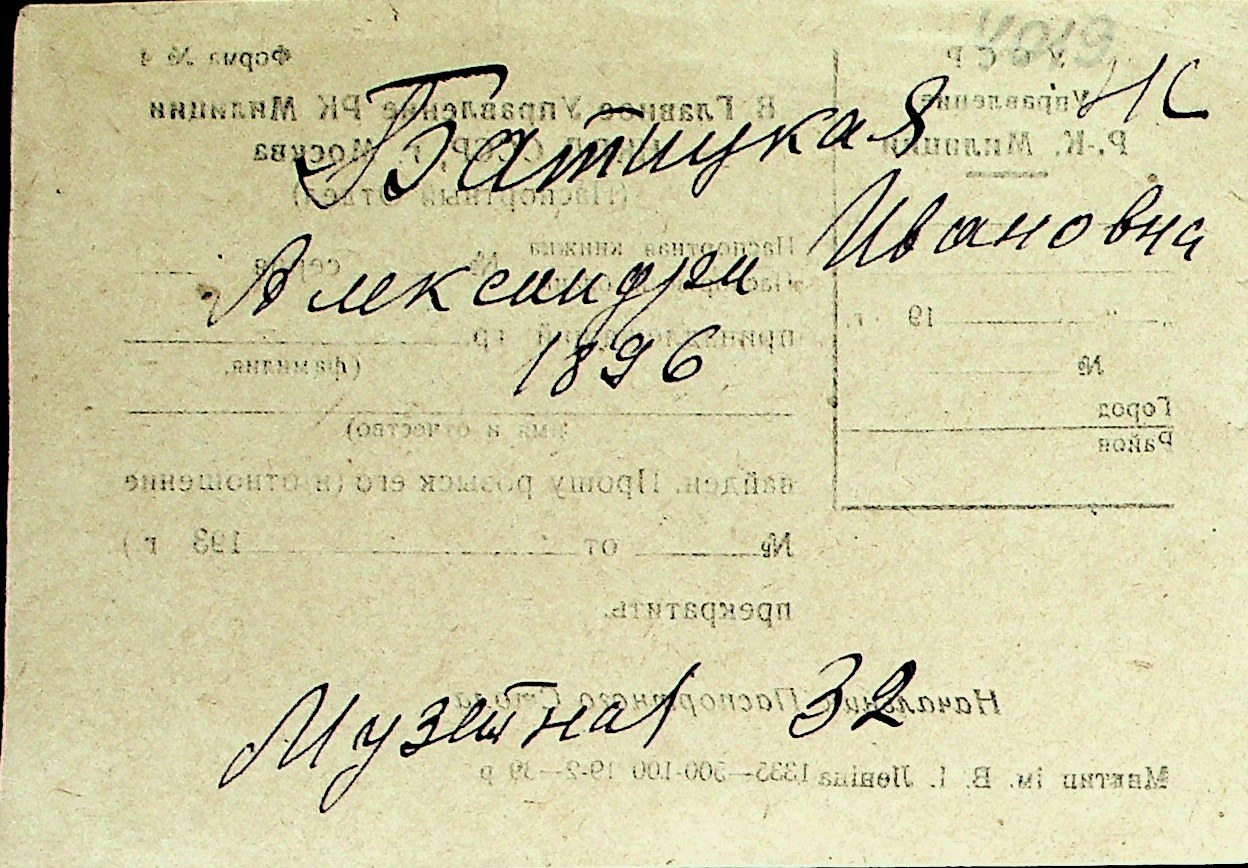 4019
Батицкая НС
Александра Ивановна
1896
Музейная 32
Форма № 4
В Главное Управление РК Милиции
СССР, г. Москва
(Паспортный отдел)
Паспортная книжка
№ серия
принадлежащий гр
(фамилия,
имя и отчество)
найден. Прошу розыск его (и отношение
№ от 193 г.)
прекратить.
Начальник Паспортного Стола
УССР
Управление
Р.-К. Милиции
" " 19 г.
№
Город
Район
Мактип ім. В. І. Леніна 1335—500-100 19-2—39 р